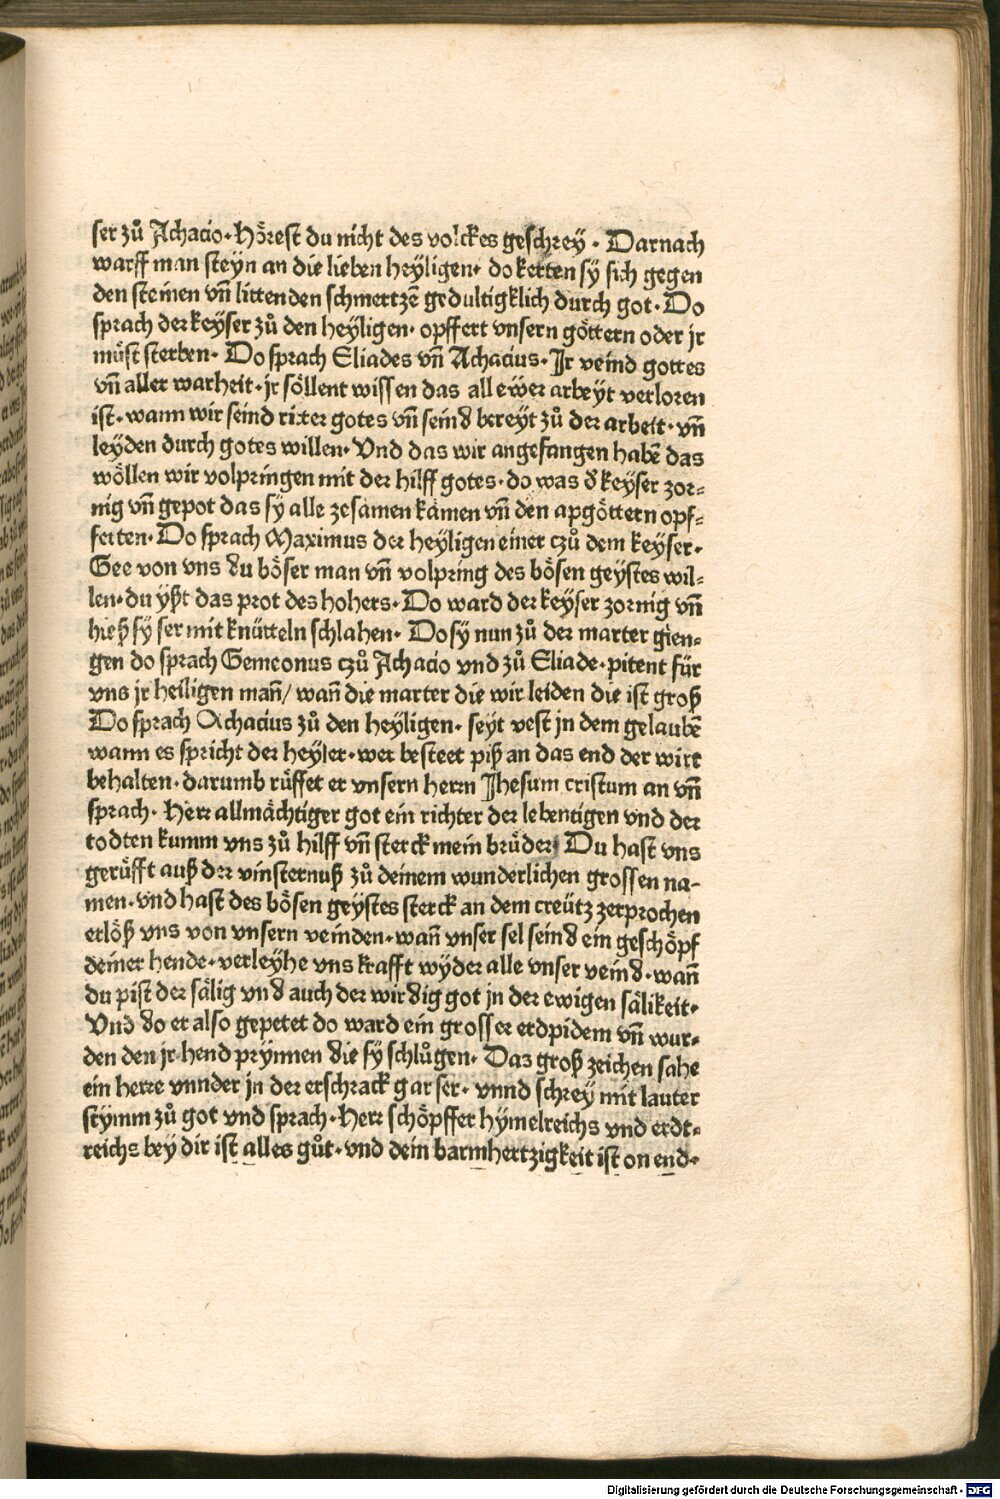 ser zů Achacio· Hörest du nicht des volckes geschrey · Darnach
warff man steyn an die lieben heyligen· do kerten sÿ sich gegen
den steinen vñ litten den schmertzẽ gedultigklich durch got· Do
sprach der keyser zů den heÿligen· opffert vnsern göttern oder jr
müst sterben· Do sprach Eliades vñ Achacius· Jr veind gottes
vñ aller warheit· jr söllent wissen das all ewer arbeyt verloren
ist· wann wir seind ritter gotes vñ seind bereyt zů der arbeit· vñ
leyden durch gotes willen· Vnd das wir angefangen habẽ das
wöllen wir volpringen mit der hilff gotes· do was d keyser zor⸗
nig vñ gepot das sÿ alle zesamen kämen vñ den apgöttern opf⸗
ferten· Do sprach Maximus der heÿligen einer czů dem keyser·
Gee von vns du böser man vñ volpring des bösen geÿstes wil⸗
len· du ÿßt das prot des hohers· Do ward der keyser zornig vñ
hieß sÿ ser mit knütteln schlahen· Do sÿ nun zů der marter gien⸗
gen do sprach Gemeonus czů Achacio vnd zů Eliade· pitent für
vns jr heiligen mañ/ wañ die marter die wir leiden die ist groß
Do sprach Achacius zů den heÿligen· seyt vest jn dem gelaubẽ
wann es spricht der heyler· wer besteet piß an das end der wirt
behalten· darumb rüffet er vnsern herrn Jhesum cristum an vñ
sprach· Herr allmächtiger got ein richter der lebentigen vnd der
todten kumm vns zů hilff vñ sterck mein brüder· Du hast vns
gerüfft auß der vinsternuß zů deinem wunderlichen grossen na⸗
men· vnd hast des bösen geÿstes sterck an dem creütz zerprochen
erlöß vns von vnsern veinden· wañ vnser sel seind ein geschöpf
deiner hende· verleÿhe vns krafft wÿder alle vnser veind· wañ
du pist der sälig vnd auch der wirdig got jn der ewigen sälikeit·
Vnd do er also gepetet do ward ein grosser erdpidem vñ wur⸗
den den jr hend prÿnnen die sÿ schlůgen· Daz groß zeichen sahe
ein herre vnnder jn der erschrack gar ser· vnnd schrey mit lauter
stÿmm zů got vnd sprach· Herr schöpffer hÿmelreichs vnd erdt⸗
reichs bey dir ist alles gůt· vnd dein barmhertzigkeit ist on end·
Digitalisierung gefördert durch die Deutsche Forschungsgemeinschaft - DFG